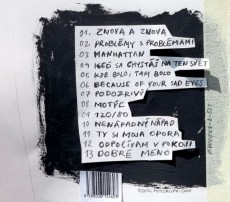 01. ZNOVA A ZNOVA
02. PROBLÉMY S PROBLÉMAMI
03. MANHATTAN
04. KEĎ SA CHYSTÁŠ NA TEN SVET
05. KDE BOLO, TAM BOLO
06. BECAUSE OF YOUR SAD EYES
07 PODOZRIVÝ
08 MOTÝĽ
09 120/80
10 NENÁPADNÝ NÁPAD
11 TY SI MOJA OPORA
12 ODPOČÍVAM V POKOJI
13 DOBRÉ MENO